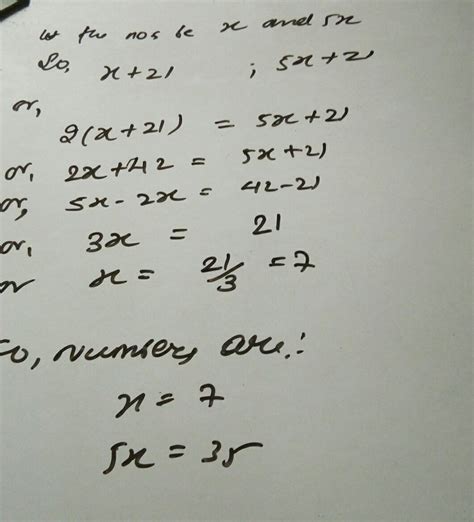 let the nos be x and 5x
So, x+21 ; 5x+21
or,
2(x+21) = 5x+21
or, 2x+42 = 5x+21
or, 5x-2x = 42-21
or, 3x = 21
or x = 21/3 = 7
So, numbers are:
x = 7
5x = 35